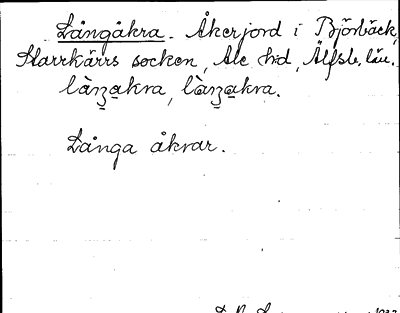 Långåkra. Åkerjord i Björbäck,
Starrkärrs socken, Ale hd, Älfsb. län.
làŋa̰kra, làŋa̰kra.
Långa åkrar.